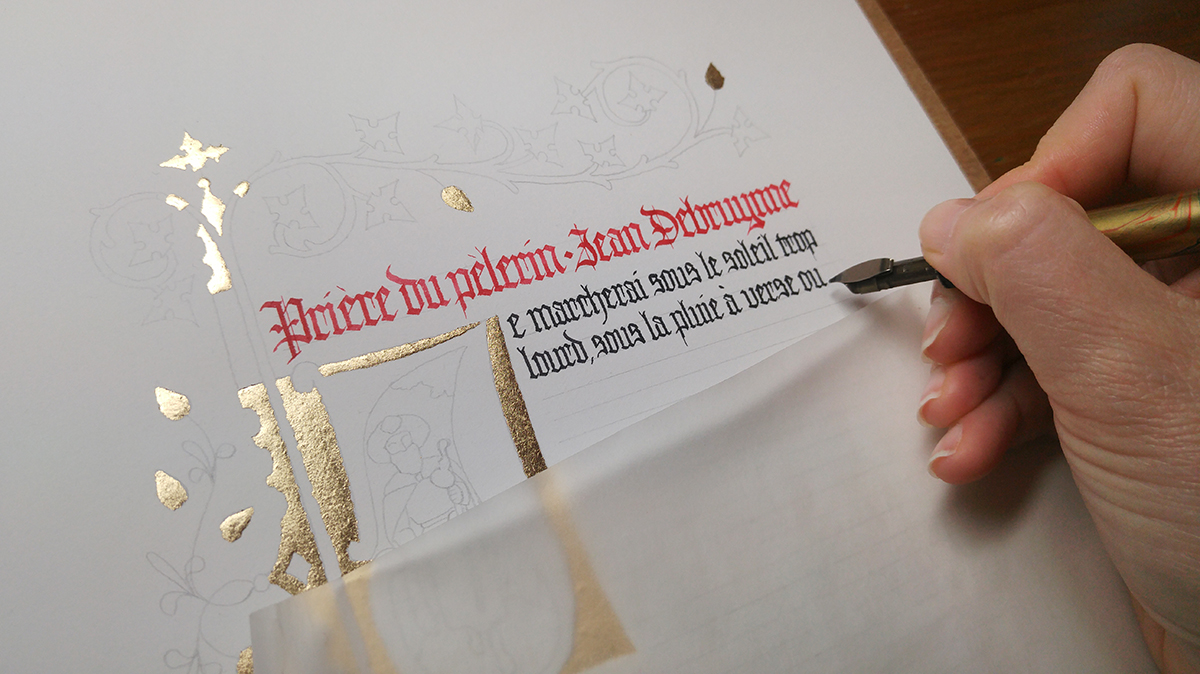 Prière du pèlerin · Jean Debruynne
e marcherai sous le soleil trop
lourd, sous la pluie à verse ou